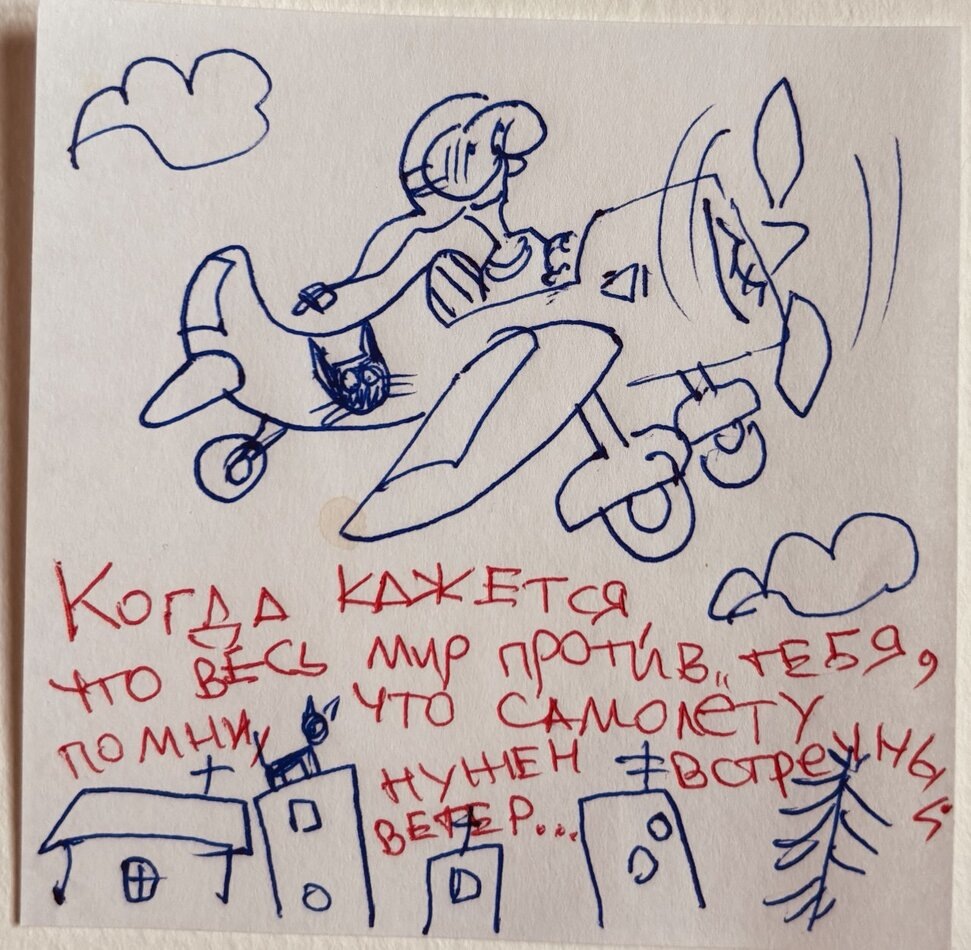 Когда кажется
что весь мир против тебя,
помни, что самолёту
нужен встречный
ветер...